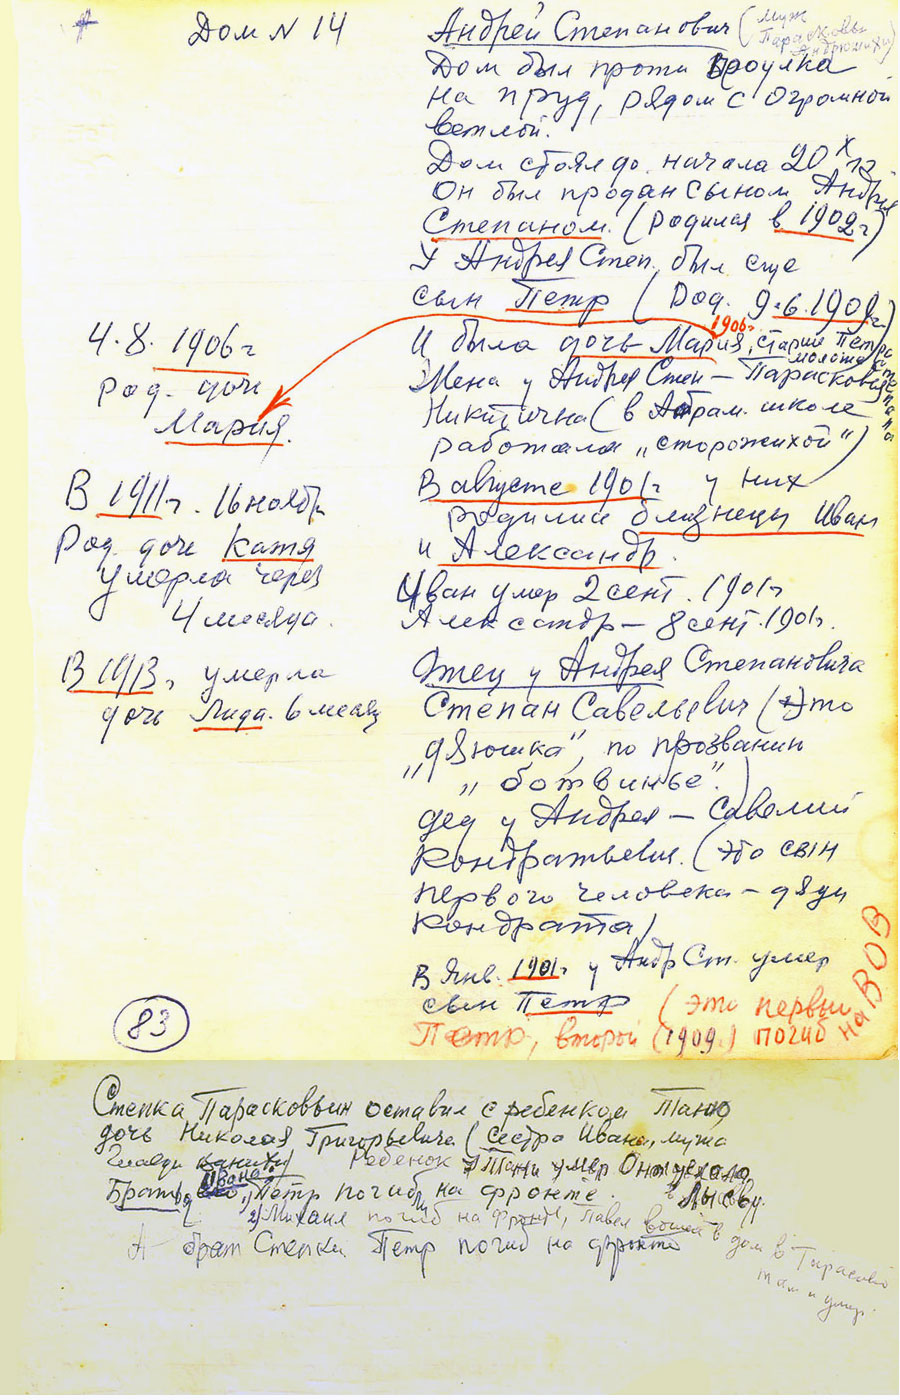 Дом N 14
Андрей Степанович (муж
Парасковьи
Андрюшихи)
Дом был проти проулка
на пруд, рядом с огромной
ветлой.
Дом стоял до начала 20х гг.
Он был продан сыном Андрея
Степаном. (родился в 1902г)
У Андрея Степ. был еще
сын Петр (Род. 9.6.1909г.)
1906г
И была дочь Мария, старше Петра
моложе Степана
Жена у Андрея Степ — Парасковия
Никитична (в Абрам. школе
работала „сторожихой")
В августе 1901г у них
родились близнецы Иван
и Александр.
Иван умер 2 сент. 1901г
Александр — 8 сент. 1901г.
Отец у Андрея Степановича
Степан Савельевич (Это
„дядюшка", по прозванию
„ботвинье".)
дед у Андрея — Савелий
Кондратьевич. (это сын
первого человека — дяди
Кондрата)
В Янв. 1901г у Андр Ст. умер
сын Петр (это первый
Петр, второй (1909г) погиб
на ВОВ
4.8. 1906г
род. дочь
Мария.
В 1911г. 16 ноября
Род. дочь Катя
умерла через
4 месяца.
В 1913г умерла
дочь Лида. 6 месяц
83
Степка Парасковьин оставил с ребенком Таню
дочь Николая Григорьевича (сестра Ивана, мужа
Ребенок Тани умер Она уехала
в Лысьву.
Братья Ивана: 1) Петр погиб на фронте.
2) Михаил погиб на фронте, Павел вошел в дом в Тарасово
там и умер.
А брат Степки Петр погиб на фронте